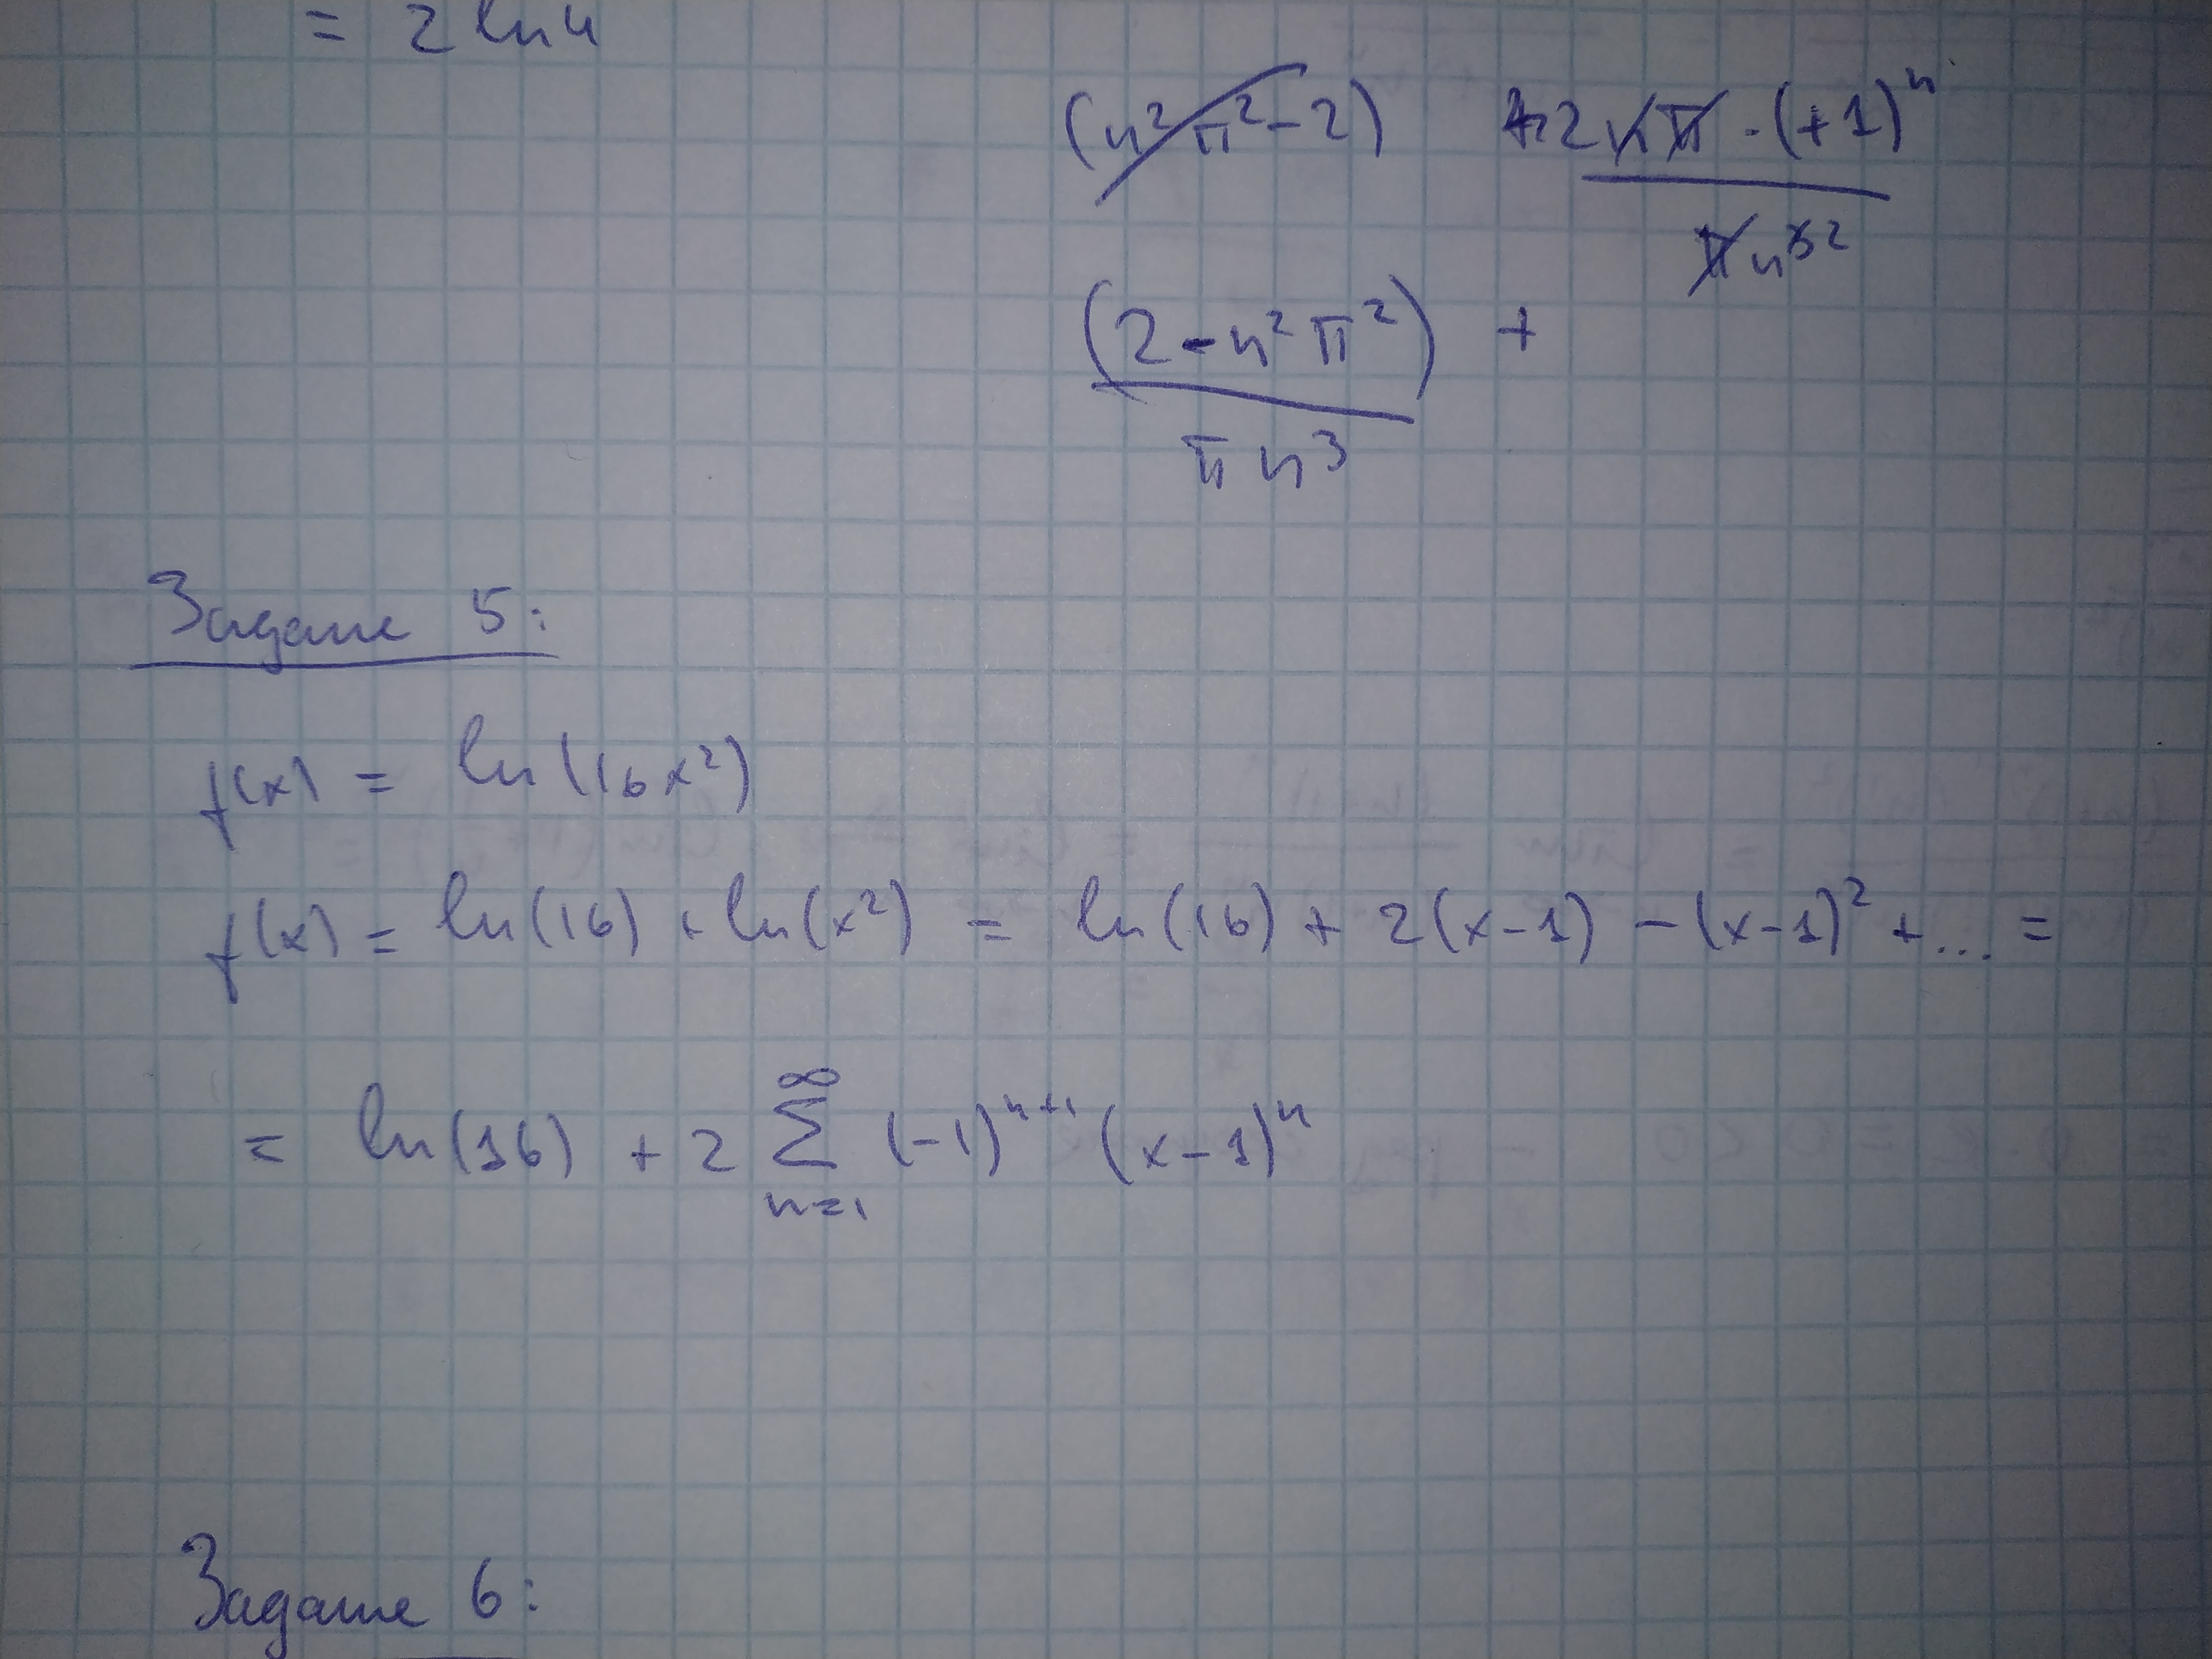 = 2 ln 4
(n² π² - 2) + 2nπ · (+1)ⁿ
πn³²
(2 - n² π²) +
π n³
Задание 5:
f(x) = ln(16x²)
f(x) = ln(16) + ln(x²) = ln(16) + 2(x-1) - (x-1)² + ... =
= ln(16) + 2 ∑ (-1)ⁿ⁺¹ (x-1)ⁿ
∞
n=1
Задание 6: